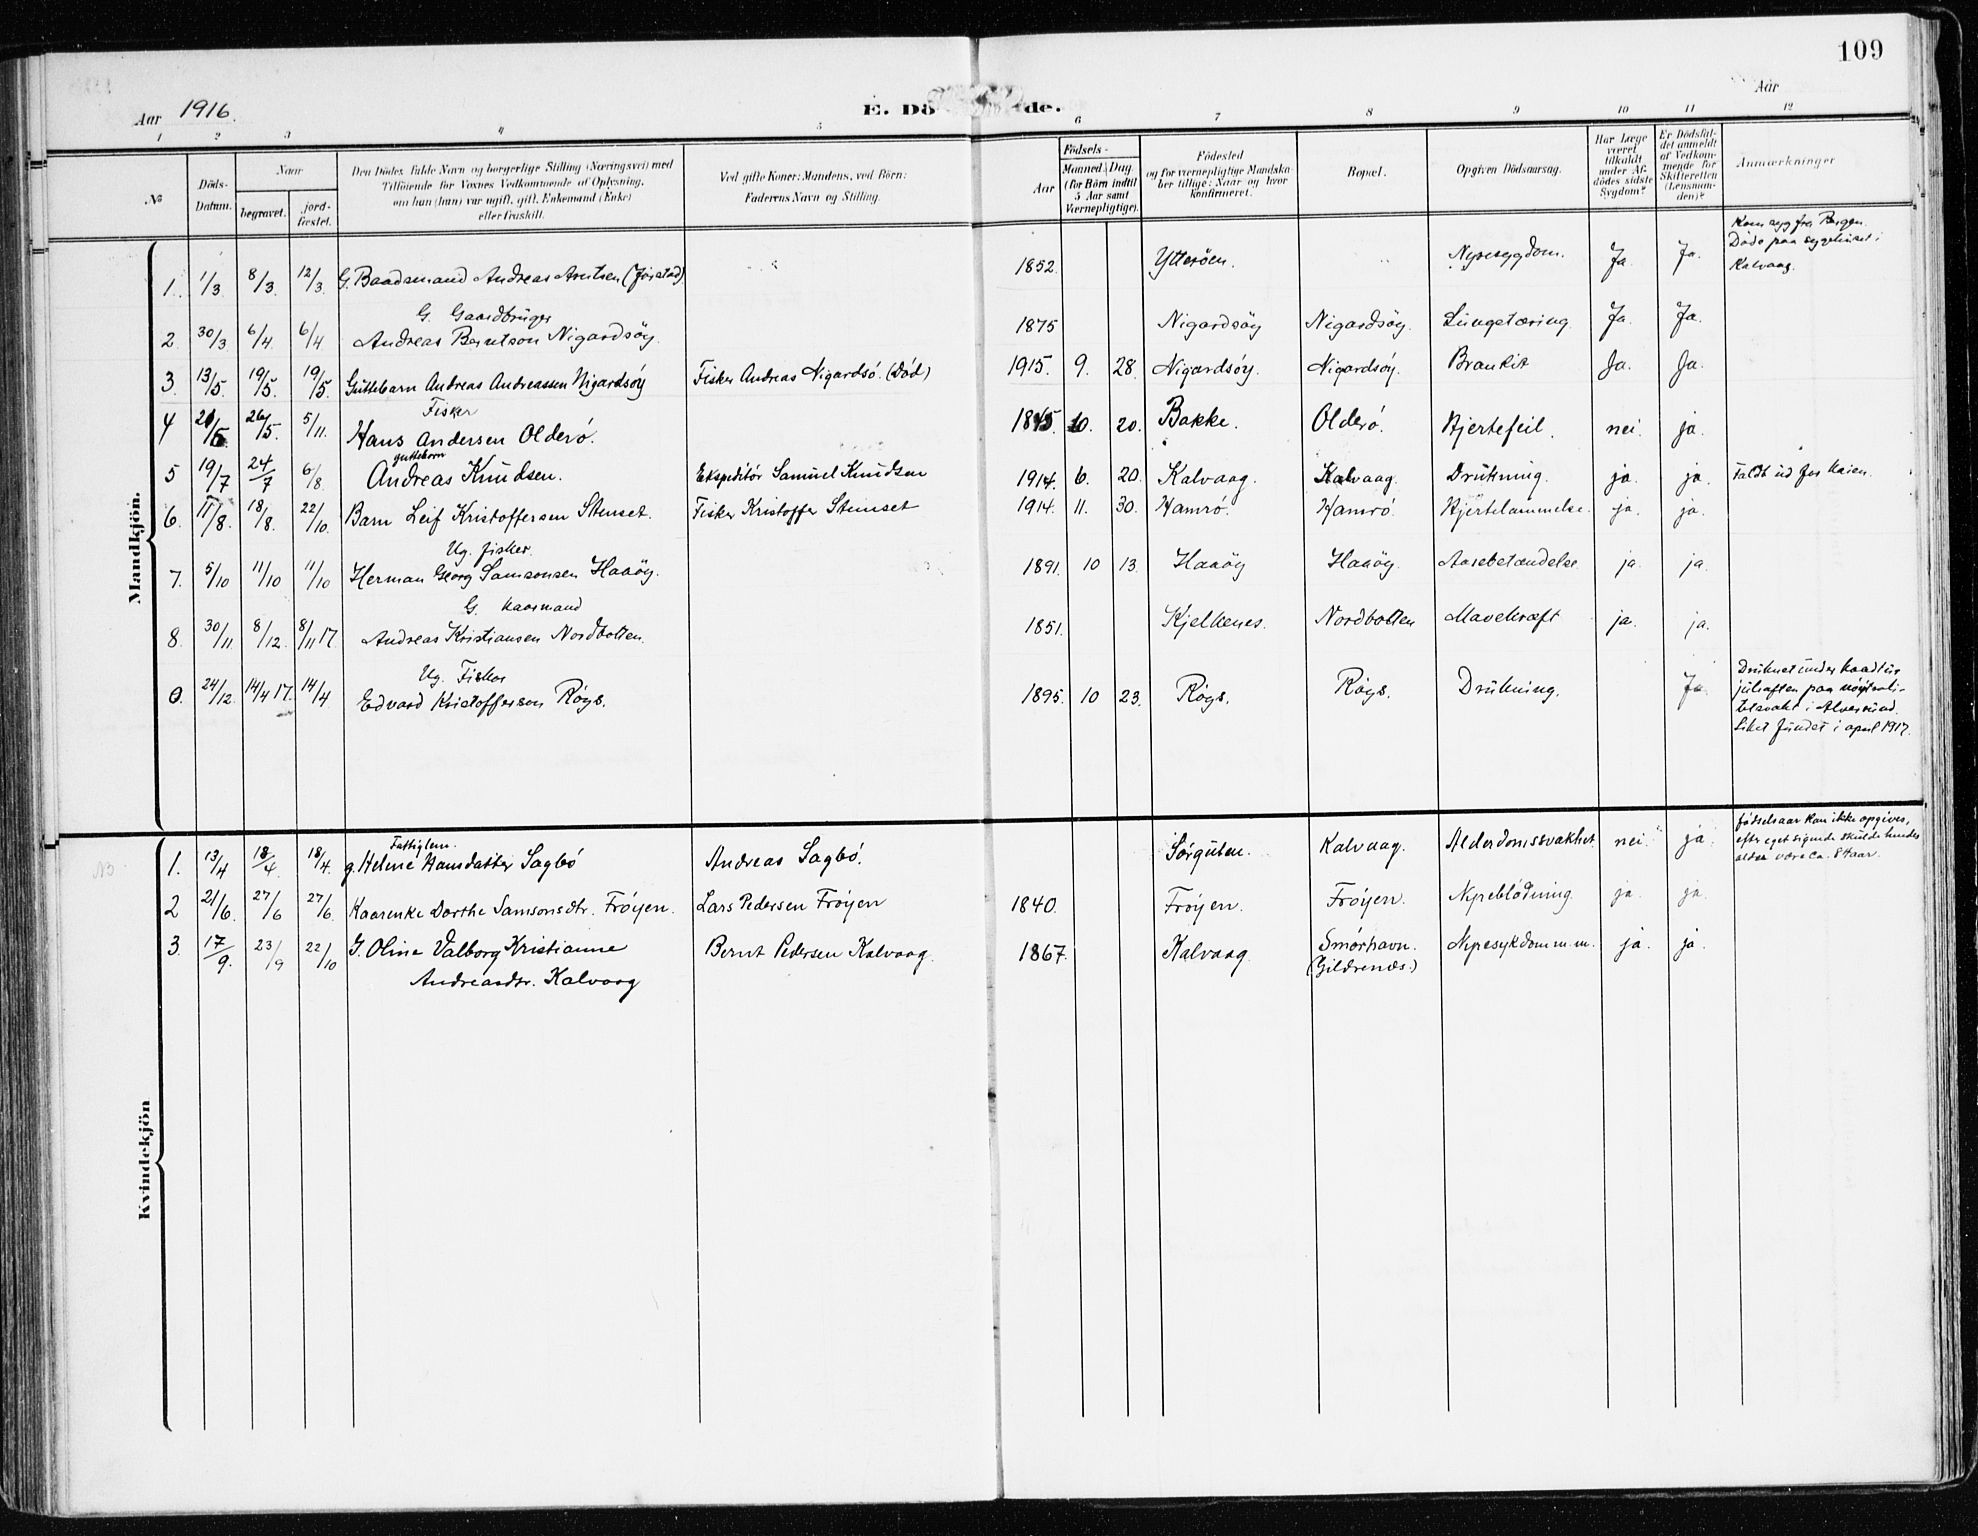 109
Aar 1916.
E. Dö de.
Aar
1 2 3 4 5 6 7 8 9 10 11 12
№
Döds-Datum.
Naar
begravet.
jord-fæstet.
Den Dödes fulde Navn og borgerlige Stilling (Næringsvei) med
Tilföiende for Voxnes Vedkommende af Oplysning,
om hun (han) var ugift, gift, Enkemand (Enke)
eller fraskilt.
Ved gifte Koner: Mandens, ved Börn:
Faderens Navn og Stilling.
Födsels-
Aar
Maaned. Dag.
(for Börn indtil
5 Aar samt
Værnepligtige).
Födested
og for værnepligtige Mandska-
ber tillige: Naar og hvor
konfirmeret.
Bopæl.
Opgiven Dödsaarsag.
Har Læge
været
tilkaldt
under Af-
dödes sidste
Sygdom?
Er Dödsfal-
det anmeldt
af Vedkom-
mende for
Skifteretten
(Lensman-
den)?
Anmærkninger
Mandkjön.
1. 1/3 8/3 12/3 G. Baadsmand Andreas Arntsen 1852. Ytteröen. Nyresygdom. Ja. Ja. Kom syg fra Bergen. Döde paa sygehuset i Kalvaag.
G. Gaardbruger
2. 30/3 6/4 6/4 Andreas Berntson Nigardsöy. 1875 Nigardsöy Nigardsöy. Lungetæring. Ja. Ja.
3. 13/5 19/5. 19/5. Guttebarn Andreas Andreassen Nigardsöy Fisker Andreas Nigardsö. (Död) 1915. 9. 28. Nigardsöy. Nigardsöy. Bronkit Ja. Ja.
Fisker
4 26/5. 5/11. Hans Andersen Olderö. 1845 10. 20. Bakke. Olderö. Hjertefeil. nei. ja.
guttebarn
5 19/7 24/7 6/8. Andreas Knudsen. Ekspeditör Samuel Knudsen 1914. 6. 20. Kalvaag. Kalvaag. Drukning. ja. ja. Faldt ud for kaien.
6. 11/8. 18/8. 22/10. Barn Leif Kristoffersen Stenset. Fisker Kristoffer Stenset 1914. 11. 30. Hamrö. Hamrö. Hjertelammelse. ja. ja.
Ug. fisker.
7. 5/10 11/10 11/10 Herman Georg Samsonsen Haaöy. 1891. 10 13. Haaöy Haaöy. Aarebetændelse ja. ja.
G. kaarmand
8 30/11 8/12. 8/11 17. Andreas Kristiansen Nordbotten. 1851. Kjelkenes. Nordbotten Mavekræft ja. ja.
Ug. Fisker
24/12. 14/4 17. 14/4 Edvard Kristofferson Röys. 1895. 10 23. Röys. Röys. Drukning. Ja. Druknet under baadtur juleaften paa nöytrali-tetsvakt i Alversund. Liket fundet i april 1917.
Kvindekjön
Fattiglem.
1. 13/4 18/4. 18/4. g. Helene Hansdatter Sagbö Andreas Sagbö. Sörgulen. Kalvaag. Alderdomssvakhet nei. ja. födselsaar kan ikke opgives, efter eget sigende skulde hendes alder være ca. 84 aar.
2 21/6. 27/6 27/6. Kaarenke Dorthe Samsonsdtr. Fröyen. Lars Pedersen Fröyen 1840. Fröyen. Fröyen. Nyreblödning. ja. ja.
3. 17/9. 23/9 22/10 G. Oline Valborg Kristianne Bernt Pedersen Kalvaag. 1867. Kalvaag. Smörhavn. Nyresykdom m.m. ja. ja.
Andreasdtr. Kalvaag (Gildrenes.)